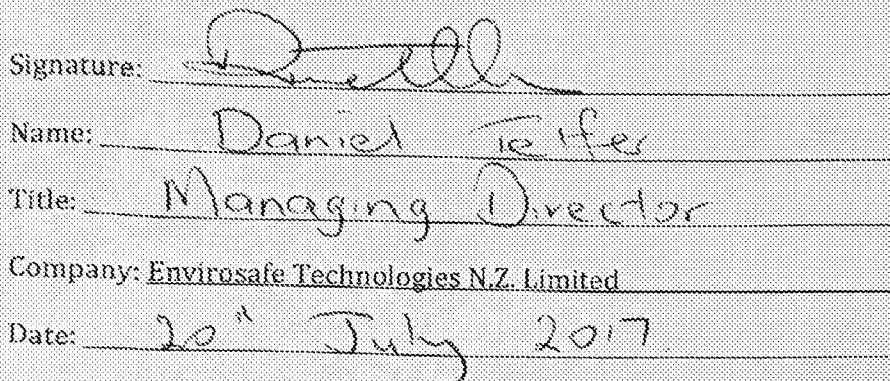 Signature:
Name: Daniel Telfer
Title: Managing Director
Company: Envirosafe Technologies N.Z. Limited
Date: 20" July 2017